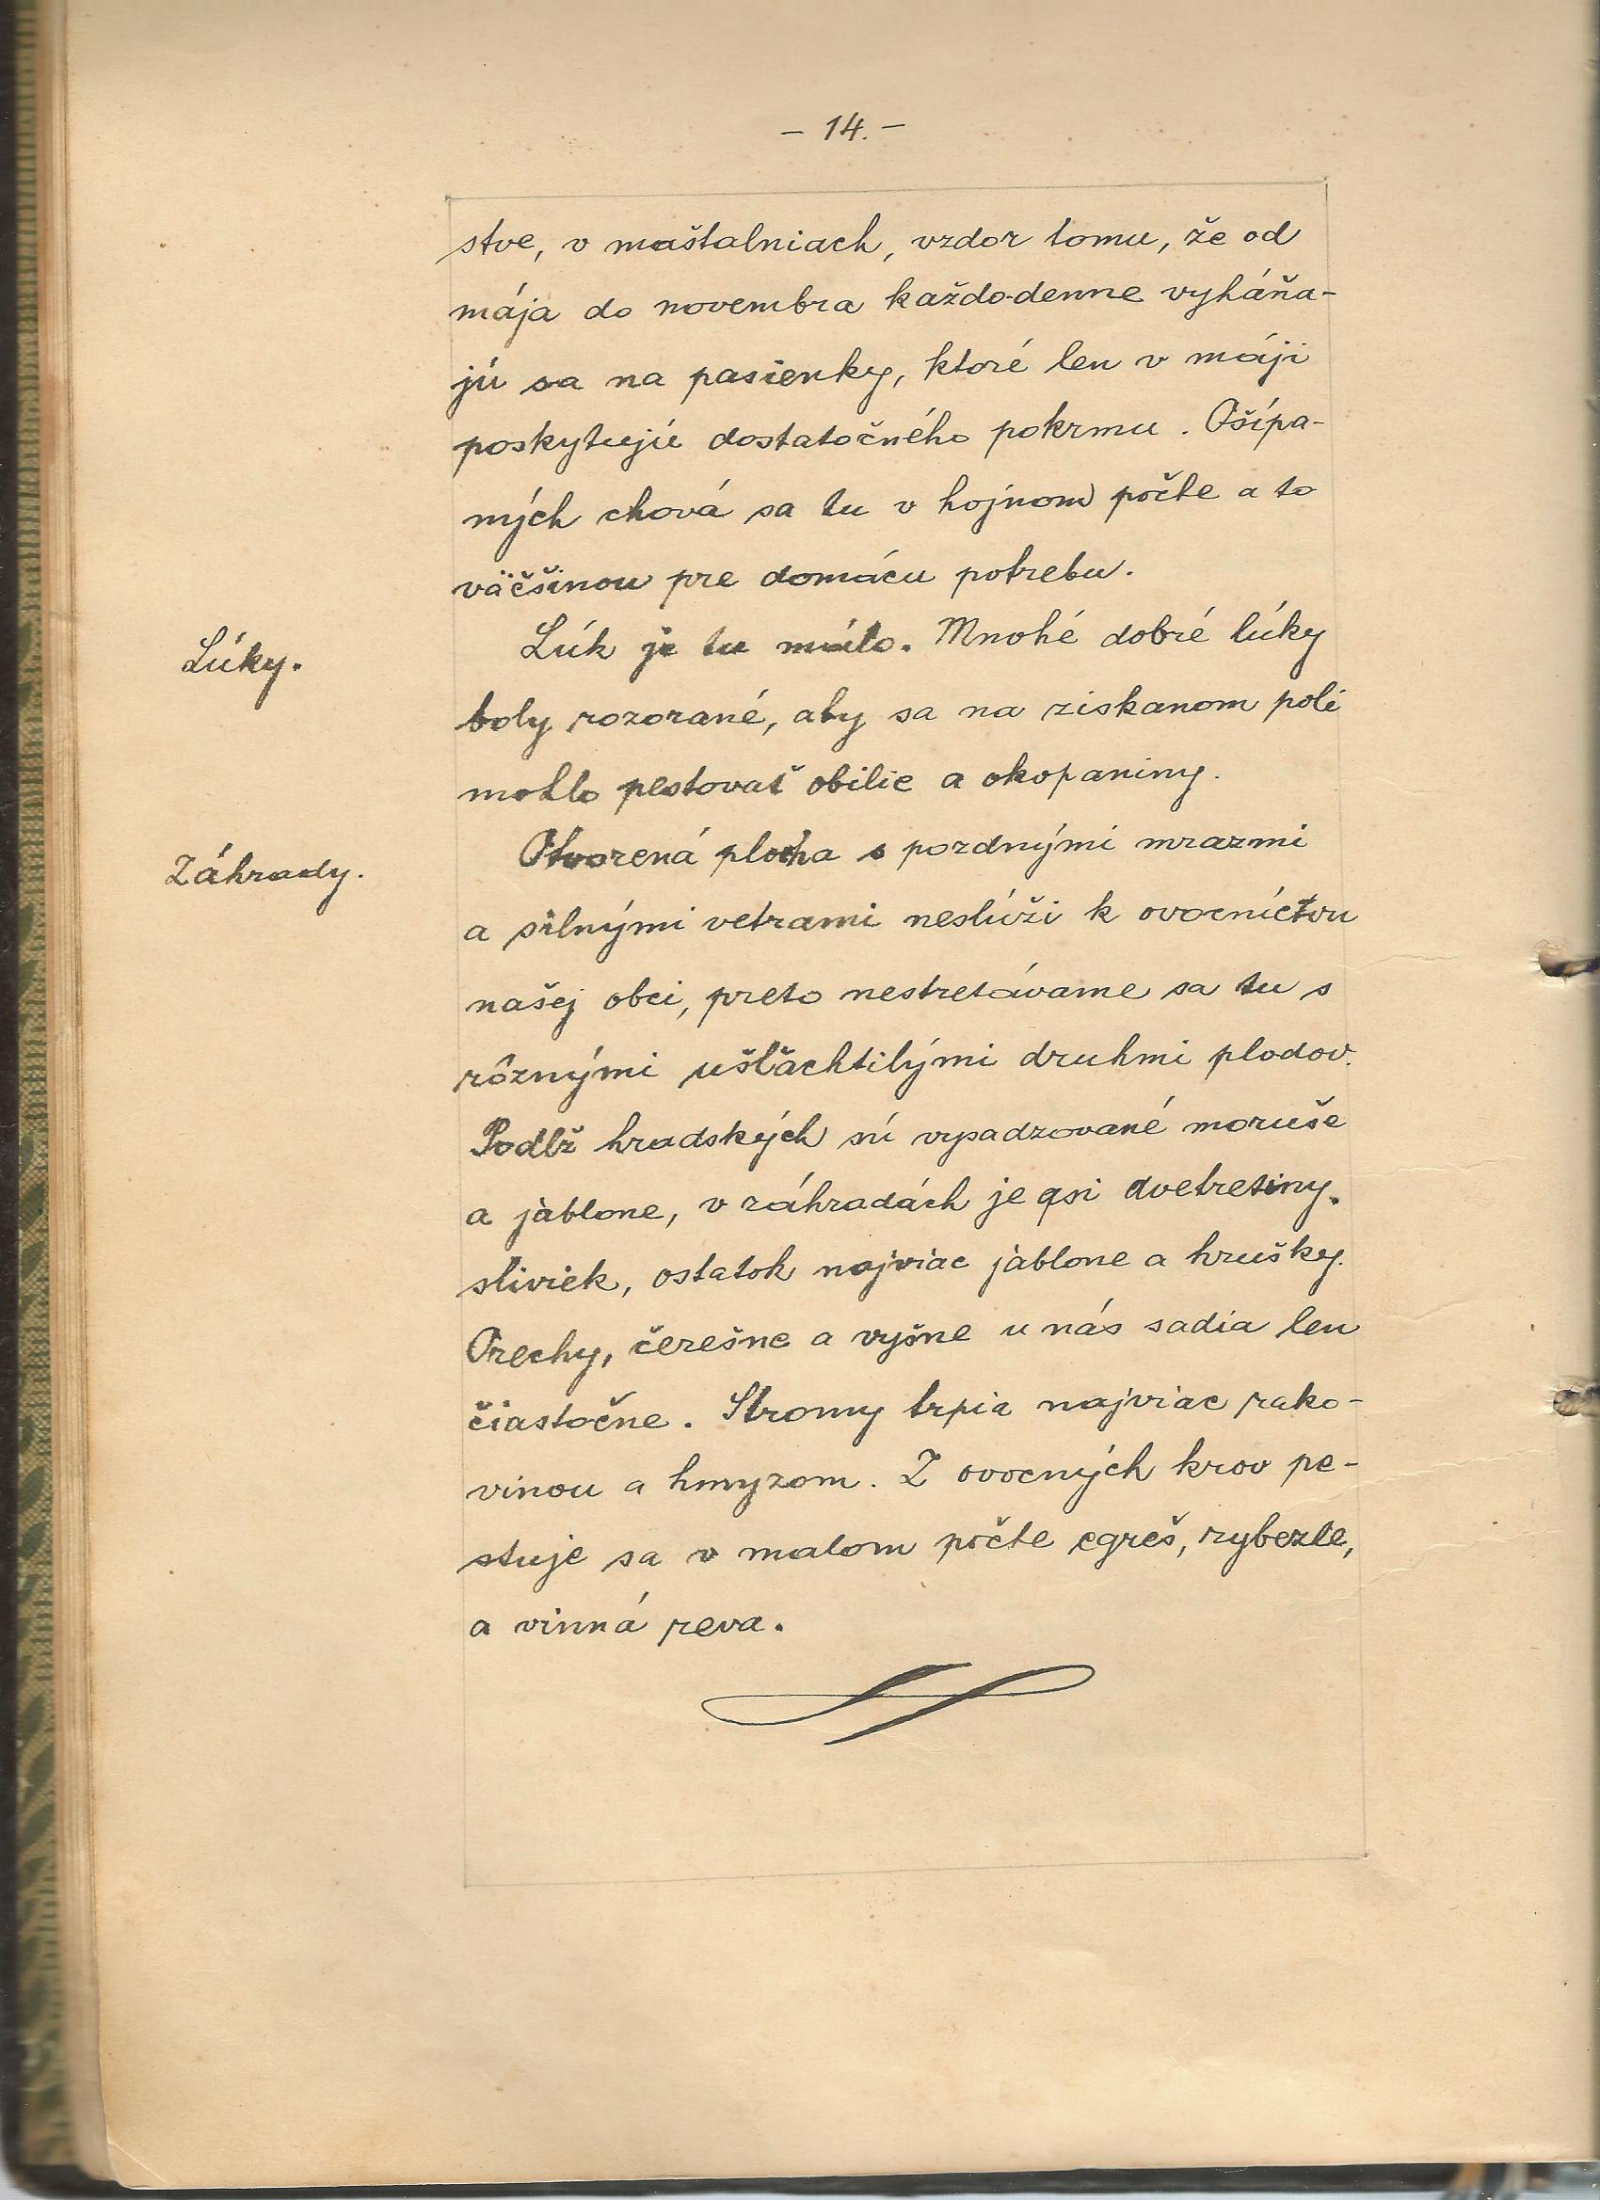 - 14. -
stve, v maštalniach, vzdor tomu, že od
mája do novembra každodenne vyháňa-
jú sa na pasienky, ktoré len v máji
poskytujú dostatočného pokrmu. Ošípa-
ných chová sa tu v hojnom počte a to
väčšinou pre domácu potrebu.
Lúky.
Lúk je tu málo. Mnohé dobré lúky
boly rozorané, aby sa na ziskanom poli
mohlo pestovať obilie a okopaniny.
Záhrady.
Otvorená plocha s pozdnými mrazmi
a silnými vetrami neslúži k ovocníctvu
našej obci, preto nestretávame sa tu s
rôznými ušľachtilými druhmi plodov.
Podľž hradských sú vysadzované moruše
a jablone, v záhradách je asi dvetretiny
sliviek, ostatok najviac jablone a hrušky.
Orechy, čerešne a vyšne u nás sadia len
čiastočne. Stromy trpia najviac rako-
vinou a hmyzom. Z ovocných krov pe-
stuje sa v malom počte egreš, rybezle,
a vinná reva.